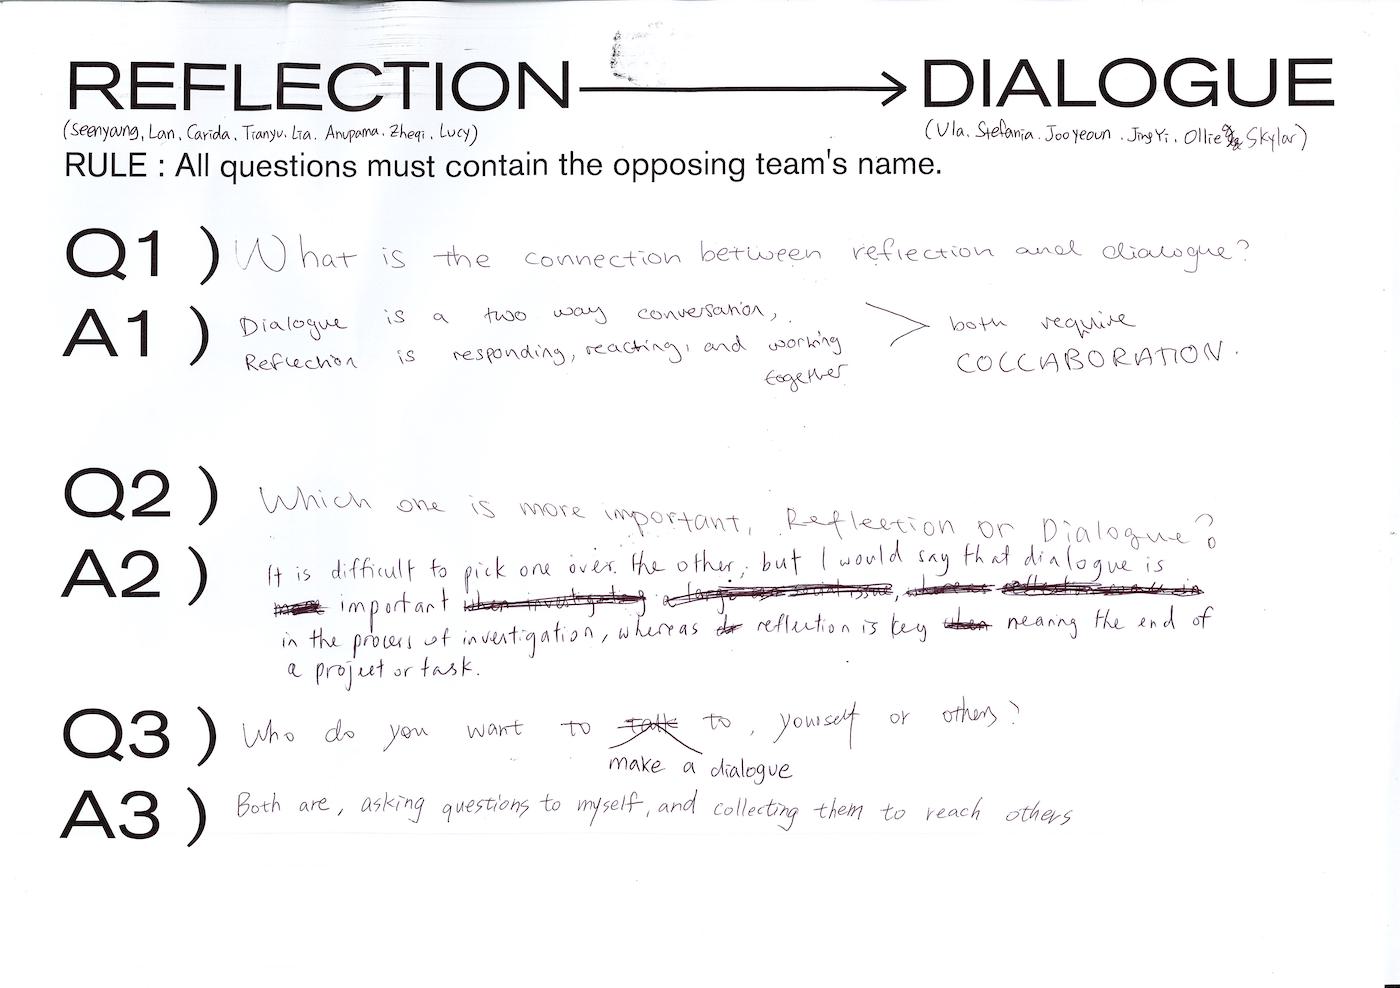 REFLECTION → DIALOGUE
(Seenyoung, Lan, Carida, Tianyu, Lia, Anupama, Zheqi, Lucy) (Ula, Stefania, Jooyeoun, JingYi, Ollie & Skylar)
RULE : All questions must contain the opposing team's name.
Q1 ) What is the connection between reflection and dialogue?
A1 ) Dialogue is a two way conversation,
Reflection is responding, reacting, and working
together
both require
COLLABORATION.
Q2 ) Which one is more important, Reflection or Dialogue?
A2 ) It is difficult to pick one over the other, but I would say that dialogue is
important
in the process of investigation, whereas reflection is key nearing the end of
a project or task.
Q3 ) Who do you want to talk to, yourself or others?
make a dialogue
A3 ) Both are, asking questions to myself, and collecting them to reach others